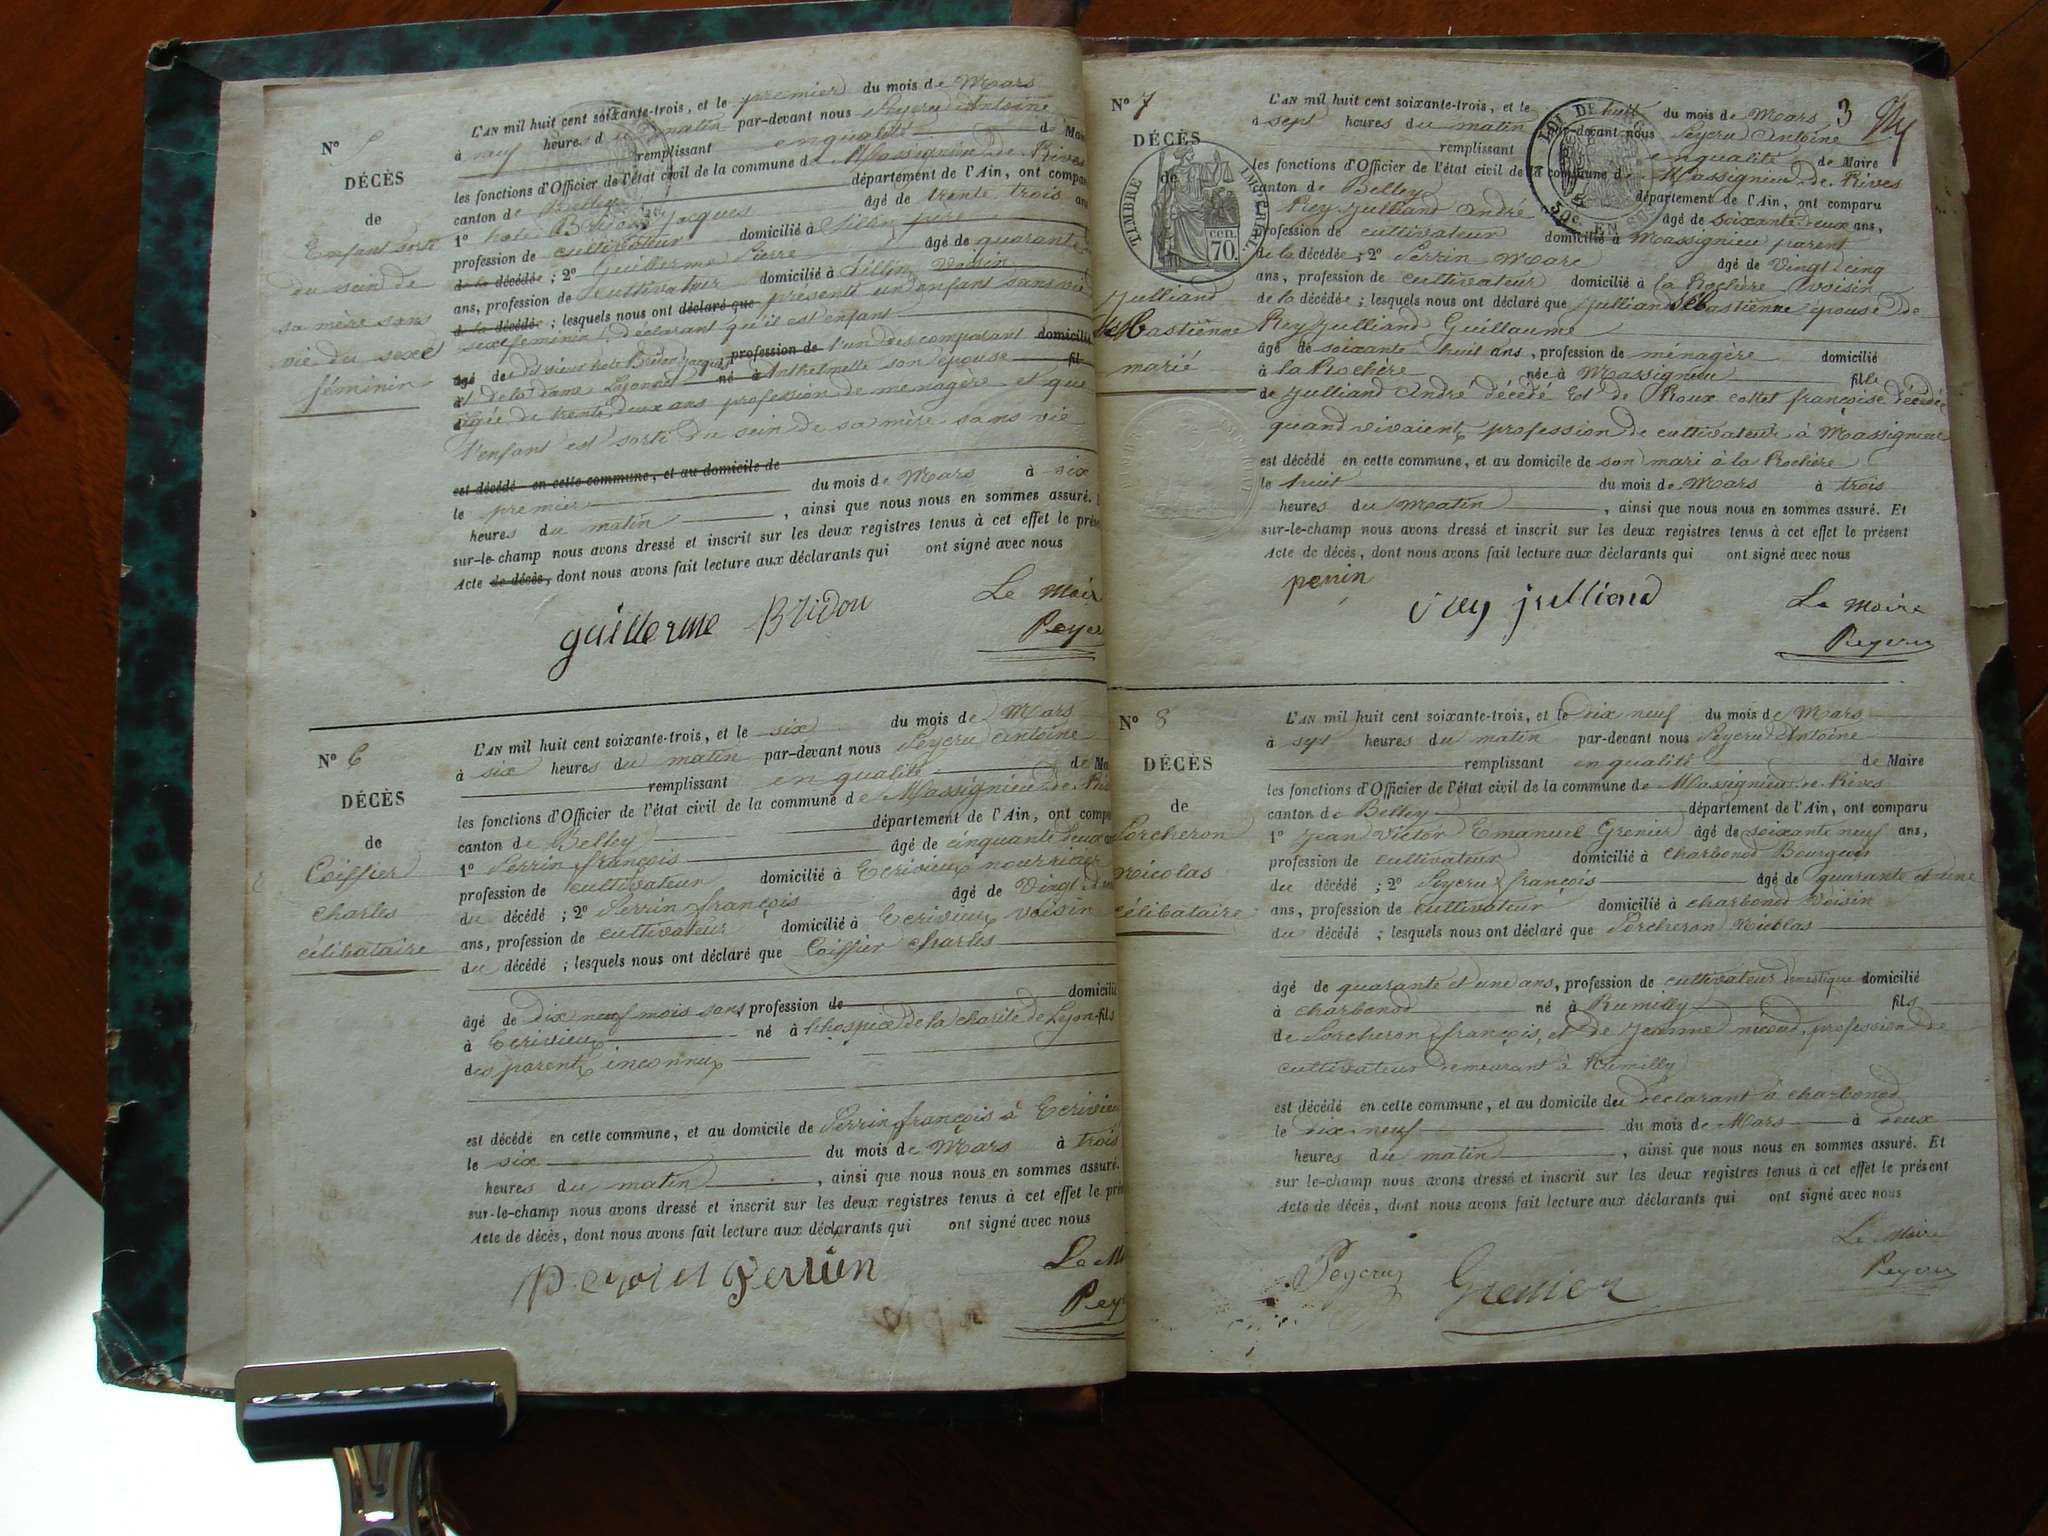 Nº 5
DÉCÈS
de
Enfant sorti
du sein de
sa mère sans
vie du sexe
féminin
L'AN mil huit cent soixante-trois, et le premier du mois de Mars
à neuf heures du matin par-devant nous Peycru Antoine
remplissant en qualité de Mai
les fonctions d'Officier de l'état civil de la commune de Massignieu de Rives
canton de Belley département de l'Ain, ont compar
1º Jacques âgé de trente trois ans
profession de cultivateur domicilié à père
de la décédée ; 2º Guillerme Pierre âgé de quarante
ans, profession de cultivateur domicilié à voisin
de la décédée ; lesquels nous ont déclaré que présenté un enfant sans vie
sexe féminin déclarant qu'il est enfant
âgé de profession de l'un des comparant domicilié
et de la dame né à Anthelmette son épouse fil
âgée de trente deux ans profession de ménagère et que
l'enfant est sorti du sein de sa mère sans vie
est décédé en cette commune, et au domicile de
le premier du mois de Mars à six
heures du matin , ainsi que nous nous en sommes assuré.
sur-le-champ nous avons dressé et inscrit sur les deux registres tenus à cet effet le prés
Acte de décès, dont nous avons fait lecture aux déclarants qui ont signé avec nous
guillerme Bridou Le Mair
Peycr
Nº 6
DÉCÈS
de
Coiffier
Charles
célibataire
L'AN mil huit cent soixante-trois, et le six du mois de Mars
à six heures du matin par-devant nous Peycru Antoine
remplissant en qualité de Ma
les fonctions d'Officier de l'état civil de la commune de Massignieu de Riv
canton de Belley département de l'Ain, ont compa
1º Perrin françois âgé de cinquante deux an
profession de cultivateur domicilié à Ecrivieux nourricier
du décédé ; 2º Perrin françois âgé de Vingt
ans, profession de cultivateur domicilié à Ecrivieux voisin
du décédé ; lesquels nous ont déclaré que Coiffier Charles
âgé de dix neuf mois sans profession de domicilié
à Ecrivieux né à l'hospice de la charité de Lyon fils
des parents inconnux
est décédé en cette commune, et au domicile de Perrin françois à Ecrivieu
le six du mois de Mars à trois
heures du matin , ainsi que nous nous en sommes assuré.
sur-le-champ nous avons dressé et inscrit sur les deux registres tenus à cet effet le pré
Acte de décès, dont nous avons fait lecture aux déclarants qui ont signé avec nous
Perrin Le M
Pey
3
Nº 7
DÉCÈS
de
TIMBRE IMPÉRIAL
70 cen.
Julliand
Sébastienne
marié
LOI DE
50c. EN SUS
L'AN mil huit cent soixante-trois, et le huit du mois de Mars
à sept heures du matin par-devant nous Peycru Antoine
remplissant en qualité de Maire
les fonctions d'Officier de l'état civil de la commune de Massignieu de Rives
canton de Belley département de l'Ain, ont comparu
Rey Julliand André âgé de soixante deux ans,
profession de cultivateur domicilié à Massignieu parent
de la décédée ; 2º Perrin Marc âgé de Vingt cinq
ans, profession de cultivateur domicilié à la Rochère voisin
de la décédée ; lesquels nous ont déclaré que Julliand Sébastienne épouse de
Rey Julliand Guillaume
âgé de soixante huit ans, profession de ménagère domicilié
à la Rochère née à Massignieu fille
de Julliand André décédé Et de Roux collet françoise décédée
quand vivaient profession de cultivateur à Massignieu
est décédé en cette commune, et au domicile de son mari à la Rochère
le huit du mois de Mars à trois
heures du Matin , ainsi que nous nous en sommes assuré. Et
sur-le-champ nous avons dressé et inscrit sur les deux registres tenus à cet effet le présent
Acte de décès, dont nous avons fait lecture aux déclarants qui ont signé avec nous
perrin rey julliand Le Maire
Peycru
Nº 8
DÉCÈS
de
Porcheron
Nicolas
célibataire
L'AN mil huit cent soixante-trois, et le dix neuf du mois de Mars
à sept heures du matin par-devant nous Peycru Antoine
remplissant en qualité de Maire
les fonctions d'Officier de l'état civil de la commune de Massignieu de Rives
canton de Belley département de l'Ain, ont comparu
1º Jean Victor Emanuel Grenier âgé de soixante neuf ans,
profession de cultivateur domicilié à Charbonod Bourgeois
du décédé ; 2º Peycru françois âgé de quarante et une
ans, profession de cultivateur domicilié à charbonod Voisin
du décédé ; lesquels nous ont déclaré que Porcheron Nicolas
âgé de quarante et une ans, profession de cultivateur domestique domicilié
à charbonod né à Rumilly fils
de Porcheron françois, et de Jeanne nicoud, profession de
cultivateur demeurant à Rumilly
est décédé en cette commune, et au domicile du déclarant à charbonod
le dix neuf du mois de Mars à deux
heures du matin , ainsi que nous nous en sommes assuré. Et
sur le-champ nous avons dressé et inscrit sur les deux registres tenus à cet effet le présent
Acte de décès, dont nous avons fait lecture aux déclarants qui ont signé avec nous
Peycru Grenier Le Maire
Peycru